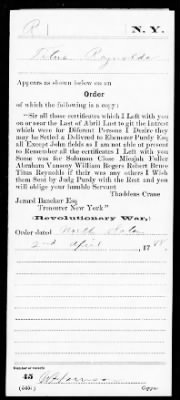 R
N. Y.
Titus Reynolds
Appears as shown below on an
Order
of which the following is a copy:
"Sir all those certificates which I Left with you
on or near the Last of Abril Last to git the Intrest
which were for Diferent Persons I Desire they
may be Settled a Delivered to Ebenezer Purdy Esq
all Except John fields as I am not able at present
to Remember all the certificates I Left with you
Some was for Solomon Close Micajah Fuller
Abraham Vansoy William Rogers Robert Bruce
Titus Reynolds if their was any others I Wish
them Sent by Judg Purdy with the Rest and you
will oblige your humble Servant
Thaddeus Crane
Jerard Bancker Esq
Treasurer New York"
(Revolutionary War.)
Order dated
2nd April 17
Number of records:
45
Copyist.